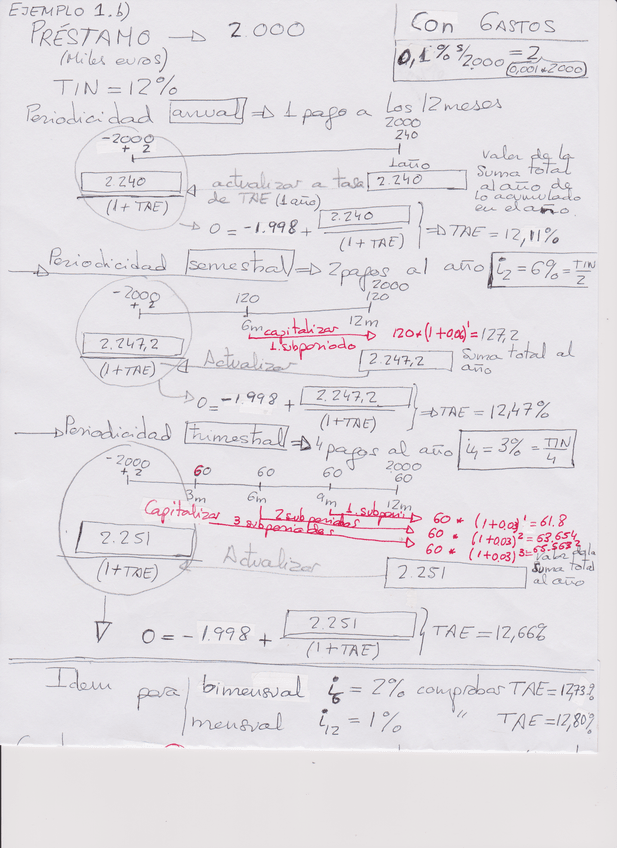 EJEMPLO 1.b)
PRÉSTAMO → 2.000
(Miles euros)
TIN = 12%
Con GASTOS
0,1% s/2000 = 2
(0,001*2000)
Periodicidad anual ⇒ 1 pago a los 12 meses
-2000
+ 2
2000
240
1 año
2.240
(1 + TAE)
actualizar a tasa
de TAE (1 año)
2.240
valor de la
suma total
al año de
lo acumulado
en el año.
0 = -1.998 + 2.240 / (1 + TAE) ⇒ TAE = 12,11%
Periodicidad semestral ⇒ 2 pagos al año i2 = 6% = TIN/2
-2000
+ 2
120
6m
2000
120
12m
capitalizar
1 subperiodo
120*(1+0,06)¹ = 127,2
2.247,2
(1 + TAE)
Actualizar
2.247,2
Suma total al
año
0 = -1.998 + 2.247,2 / (1 + TAE) ⇒ TAE = 12,47%
Periodicidad trimestral ⇒ 4 pagos al año i4 = 3% = TIN/4
-2000
+ 2
60
3m
60
6m
60
9m
2000
60
12m
Capitalizar
1 subperi
2 subperiodos
3 subperiodos
60 * (1+0,03)¹ = 61.8
60 * (1+0,03)² = 63,654
60 * (1+0,03)³ = 65.5632
2.251
(1 + TAE)
Actualizar
2.251
Valor de la
suma total
al año
0 = -1.998 + 2.251 / (1 + TAE) TAE = 12,66%
Idem para bimensual i6 = 2% comprobar TAE = 12,73%
mensual i12 = 1% " TAE = 12,80%